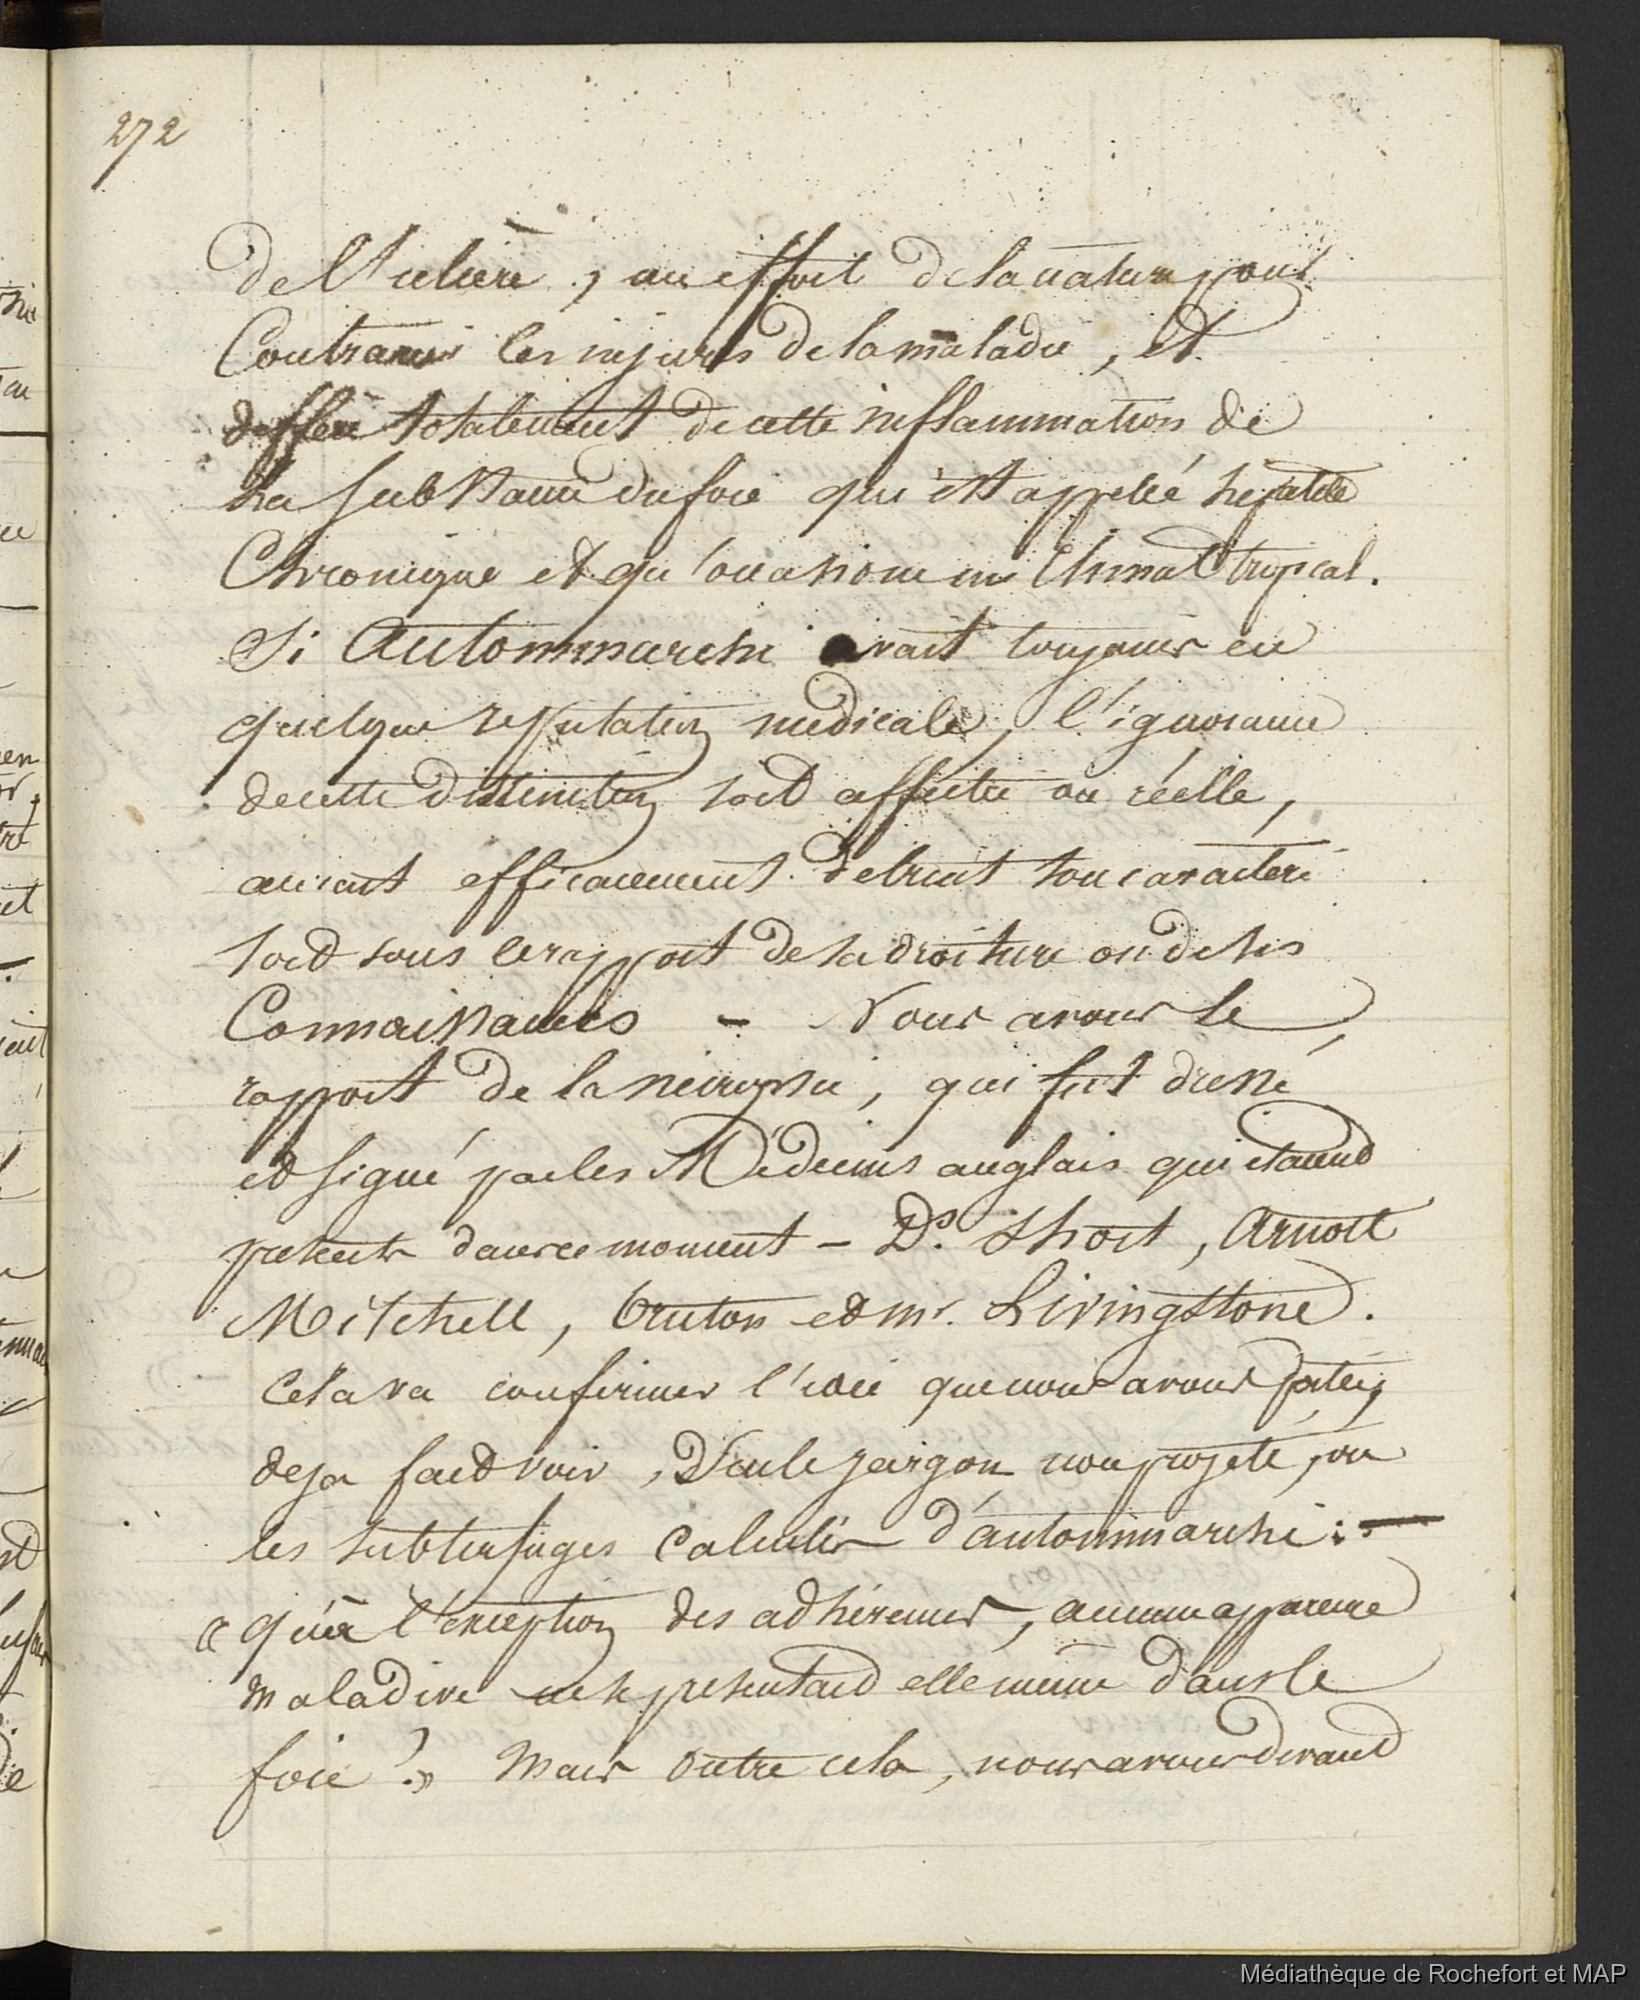 272
de l'ulcère, au effort de la nature pour
Contrarier les injures de la maladie, et
deffère totalement de cette inflammation de
la substance du foie qui est appelée hépatite
Chronique et qu'occasionne un climat tropical.
Si Autommarchi avait toujours eu
quelque reputation médicale, l'ignorance
de cette distinction soit affectée ou réelle,
aurait efficacement detruit son caractère
soit sous le rapport de sa droiture ou de ses
Connaissances - Nous avons le
rapport de la necropsie, qui fut dressé
et signé par les Médecins anglais qui étaient
présents dans ce moment - Drs. Short, Arnott
Mitchell, Bruton et Mr. Livingstone.
Cela va confirmer l'idée que nous avons
deja fait voir, D' ou le jargon non projeté, ou
les subterfuges calculés d'autommarchi: —
« qu'à l'exception des adhérences, aucune apparence
maladive ne se présentait elle même dans le
foie?» Mais outre cela, nous avons devant
Médiathèque de Rochefort et MAP